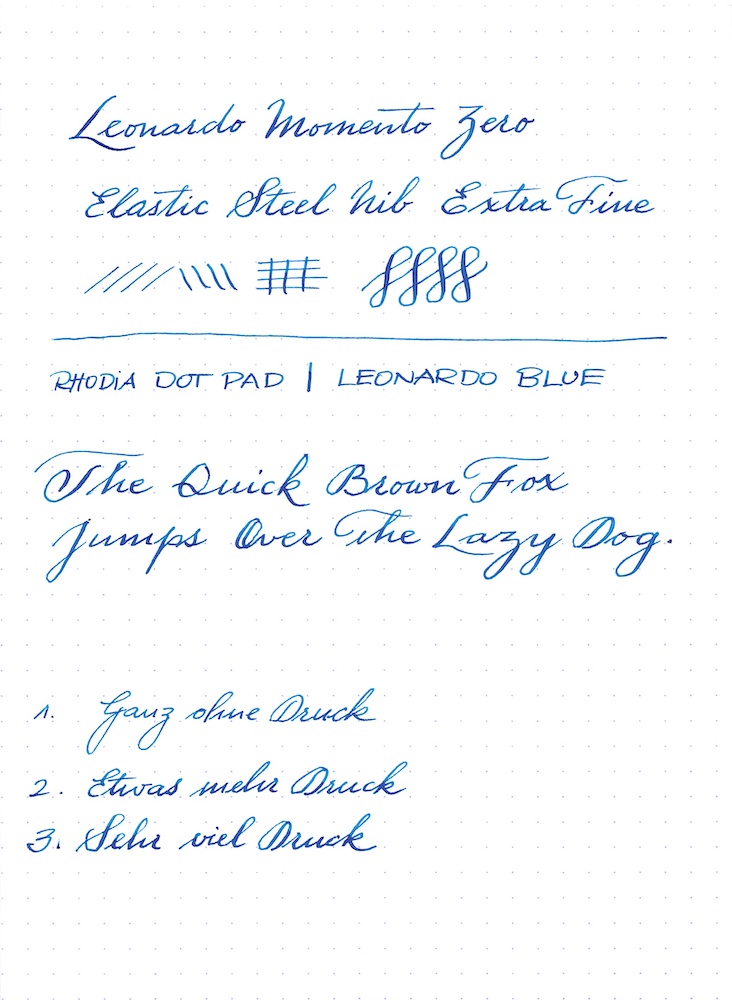 Leonardo Momento Zero
Elastic Steel Nib Extra Fine
RHODIA DOT PAD | LEONARDO BLUE
The Quick Brown Fox
Jumps Over The Lazy Dog.
1. Ganz ohne Druck
2. Etwas mehr Druck
3. Sehr viel Druck